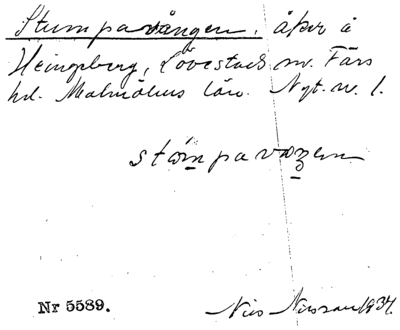 Stumpavången, åker å
Heingeberg, Lövestads sn. Färs
hd. Malmöhus län. Nyt. n. 1.
stòmpavaŋen
Nr 5589.
Nils Nilsson 1934.